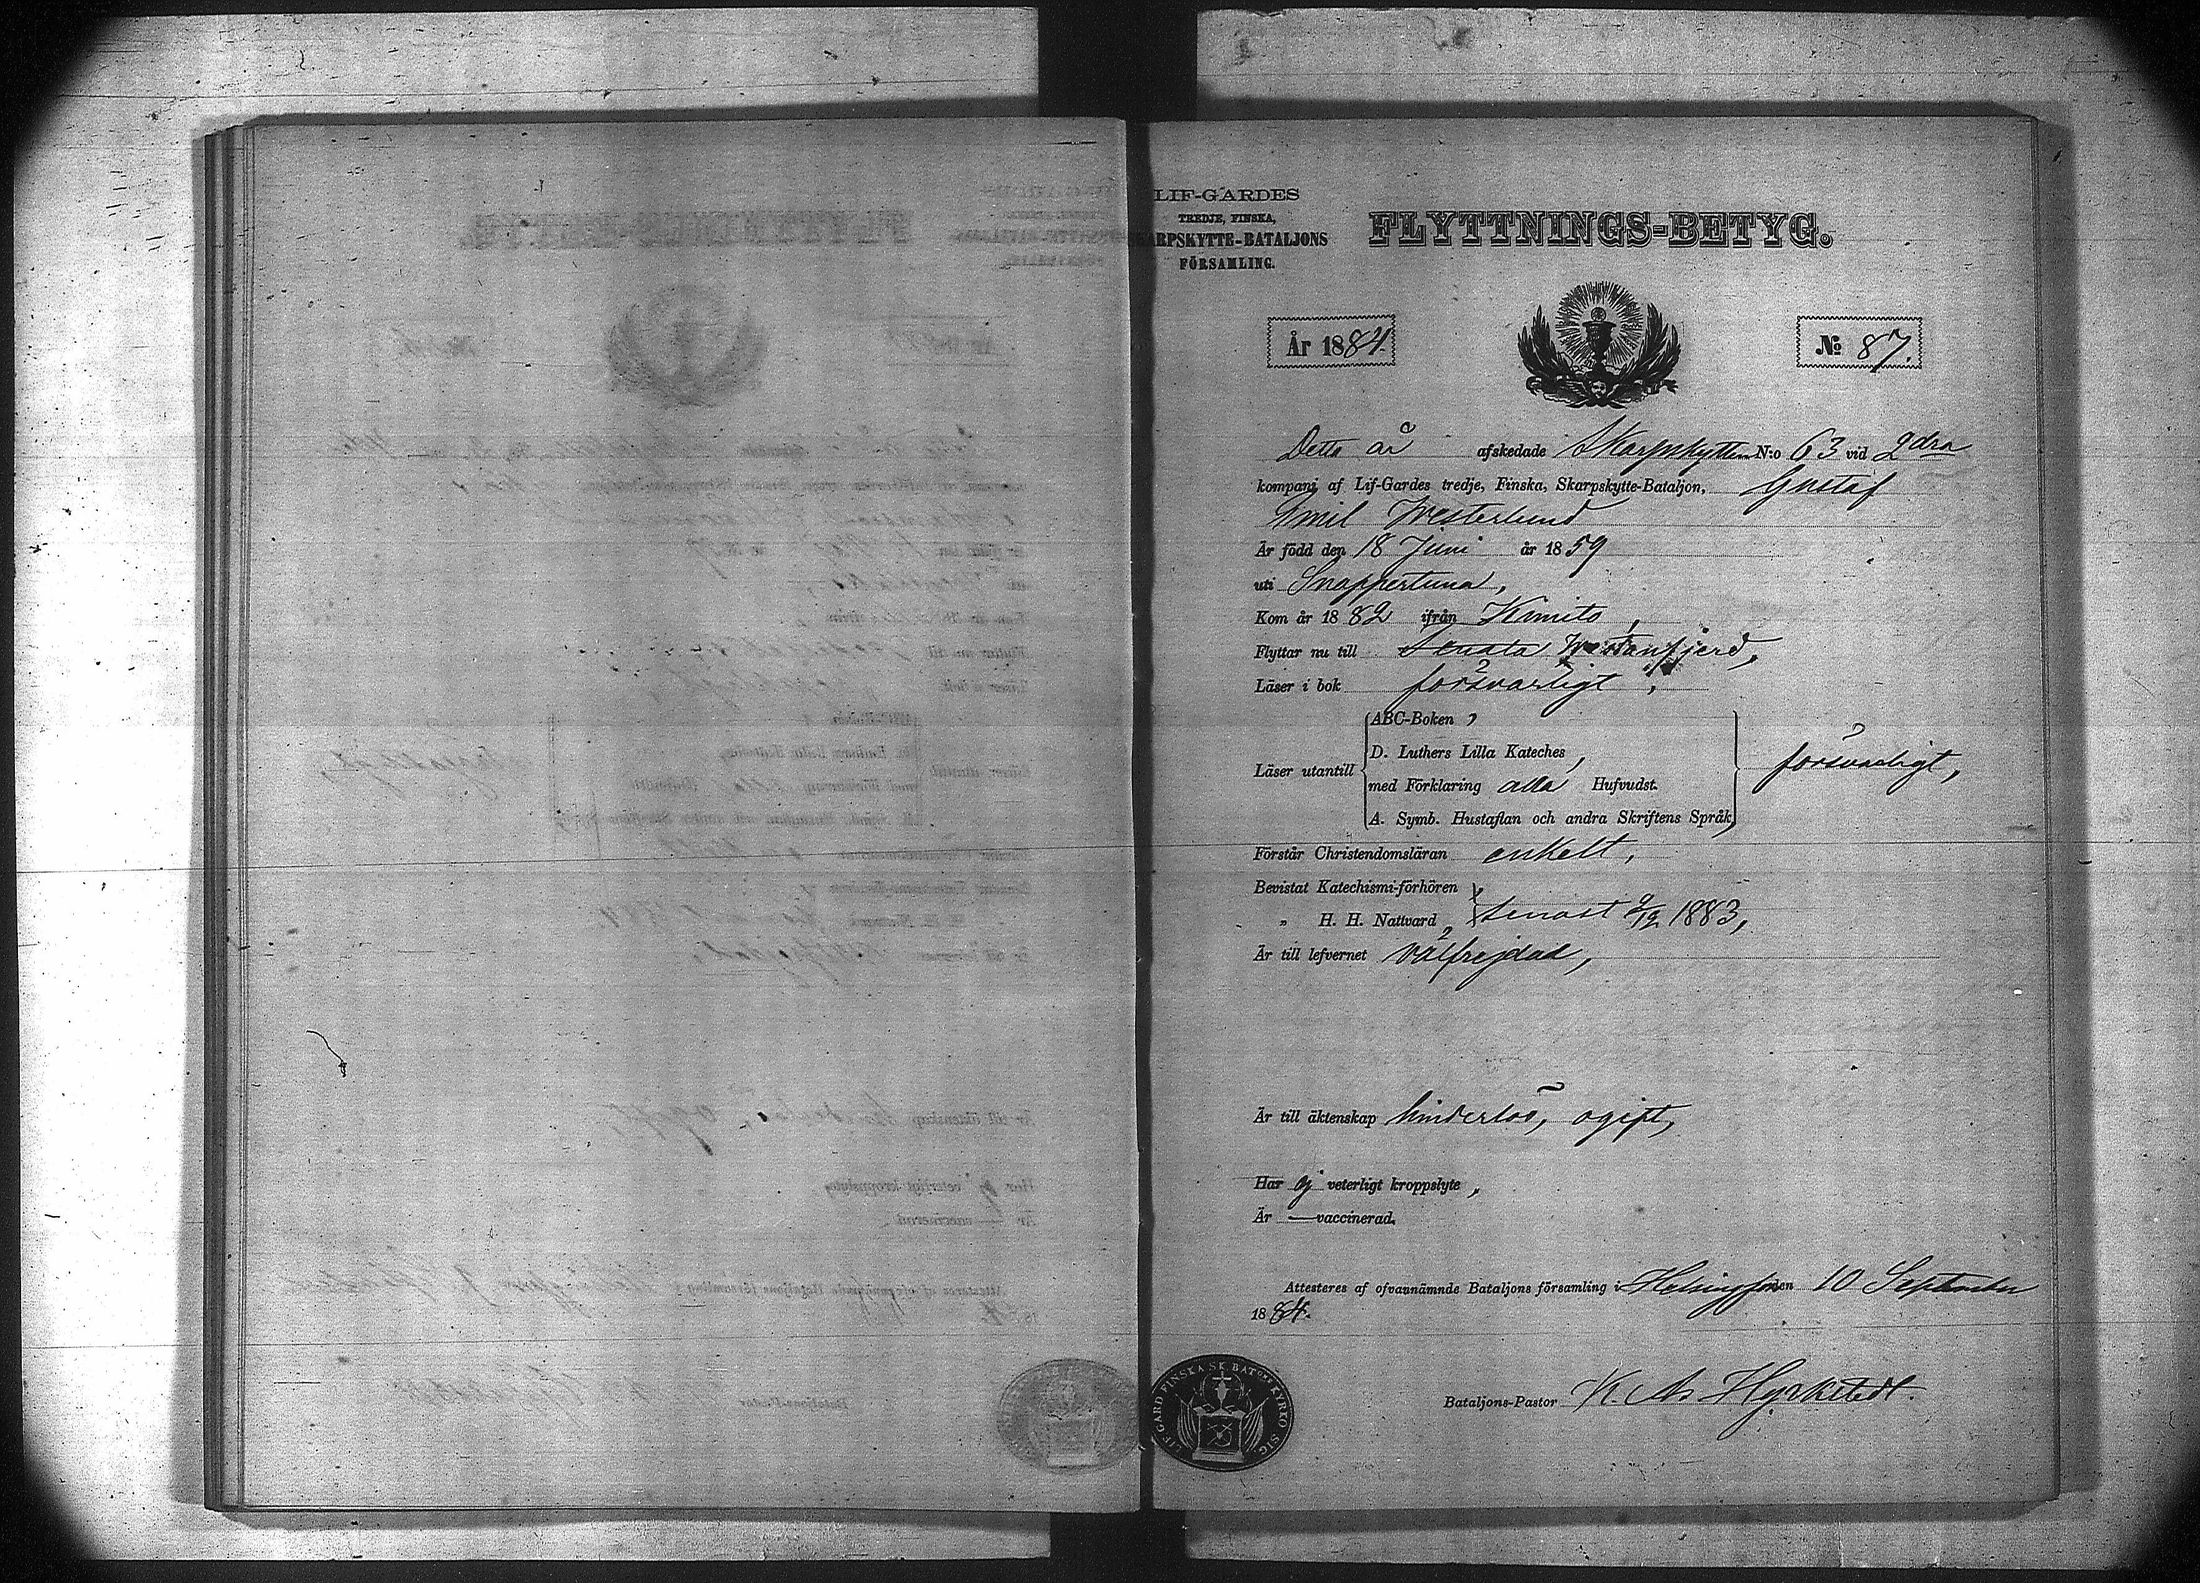 LIF-GARDES
TREDJE, FINSKA,
KARPSKYTTE-BATALJONS
FÖRSAMLING.
FLYTTNINGS-BETYG.
År 1884.
No 87.
Detta år afskedade Skarpskytten N:o 63 vid 2dra
kompani af Lif-Gardes tredje, Finska, Skarpskytte-Bataljon, Gustaf
Emil Westerlund
Är född den 18 Juni år 1859
uti Snappertuna,
Kom år 1882 ifrån Kimito,
Flyttar nu till Westanfjerd,
Läser i bok försvarligt,
Läser utantill
ABC-Boken,
D. Luthers Lilla Kateches,
med Förklaring alla Hufvudst.
A. Symb. Hustaflan och andra Skriftens Språk,
försvarligt,
Förstår Christendomsläran enkelt,
Bevistat Katechismi-förhören,
„ H. H. Nattvard, senast 2/12 1883,
Är till lefvernet välfrejdad,
Är till äktenskap hinderlös, ogift,
Har ej veterligt kroppslyte,
Är — vaccinerad.
Attesteres af ofvannämnde Bataljons församling i Helsingfors den 10 September
1884.
Bataljons-Pastor K. A. Hyrkstedt.
LIF GARD FINSKA SK. BATONS KYRKO SIG